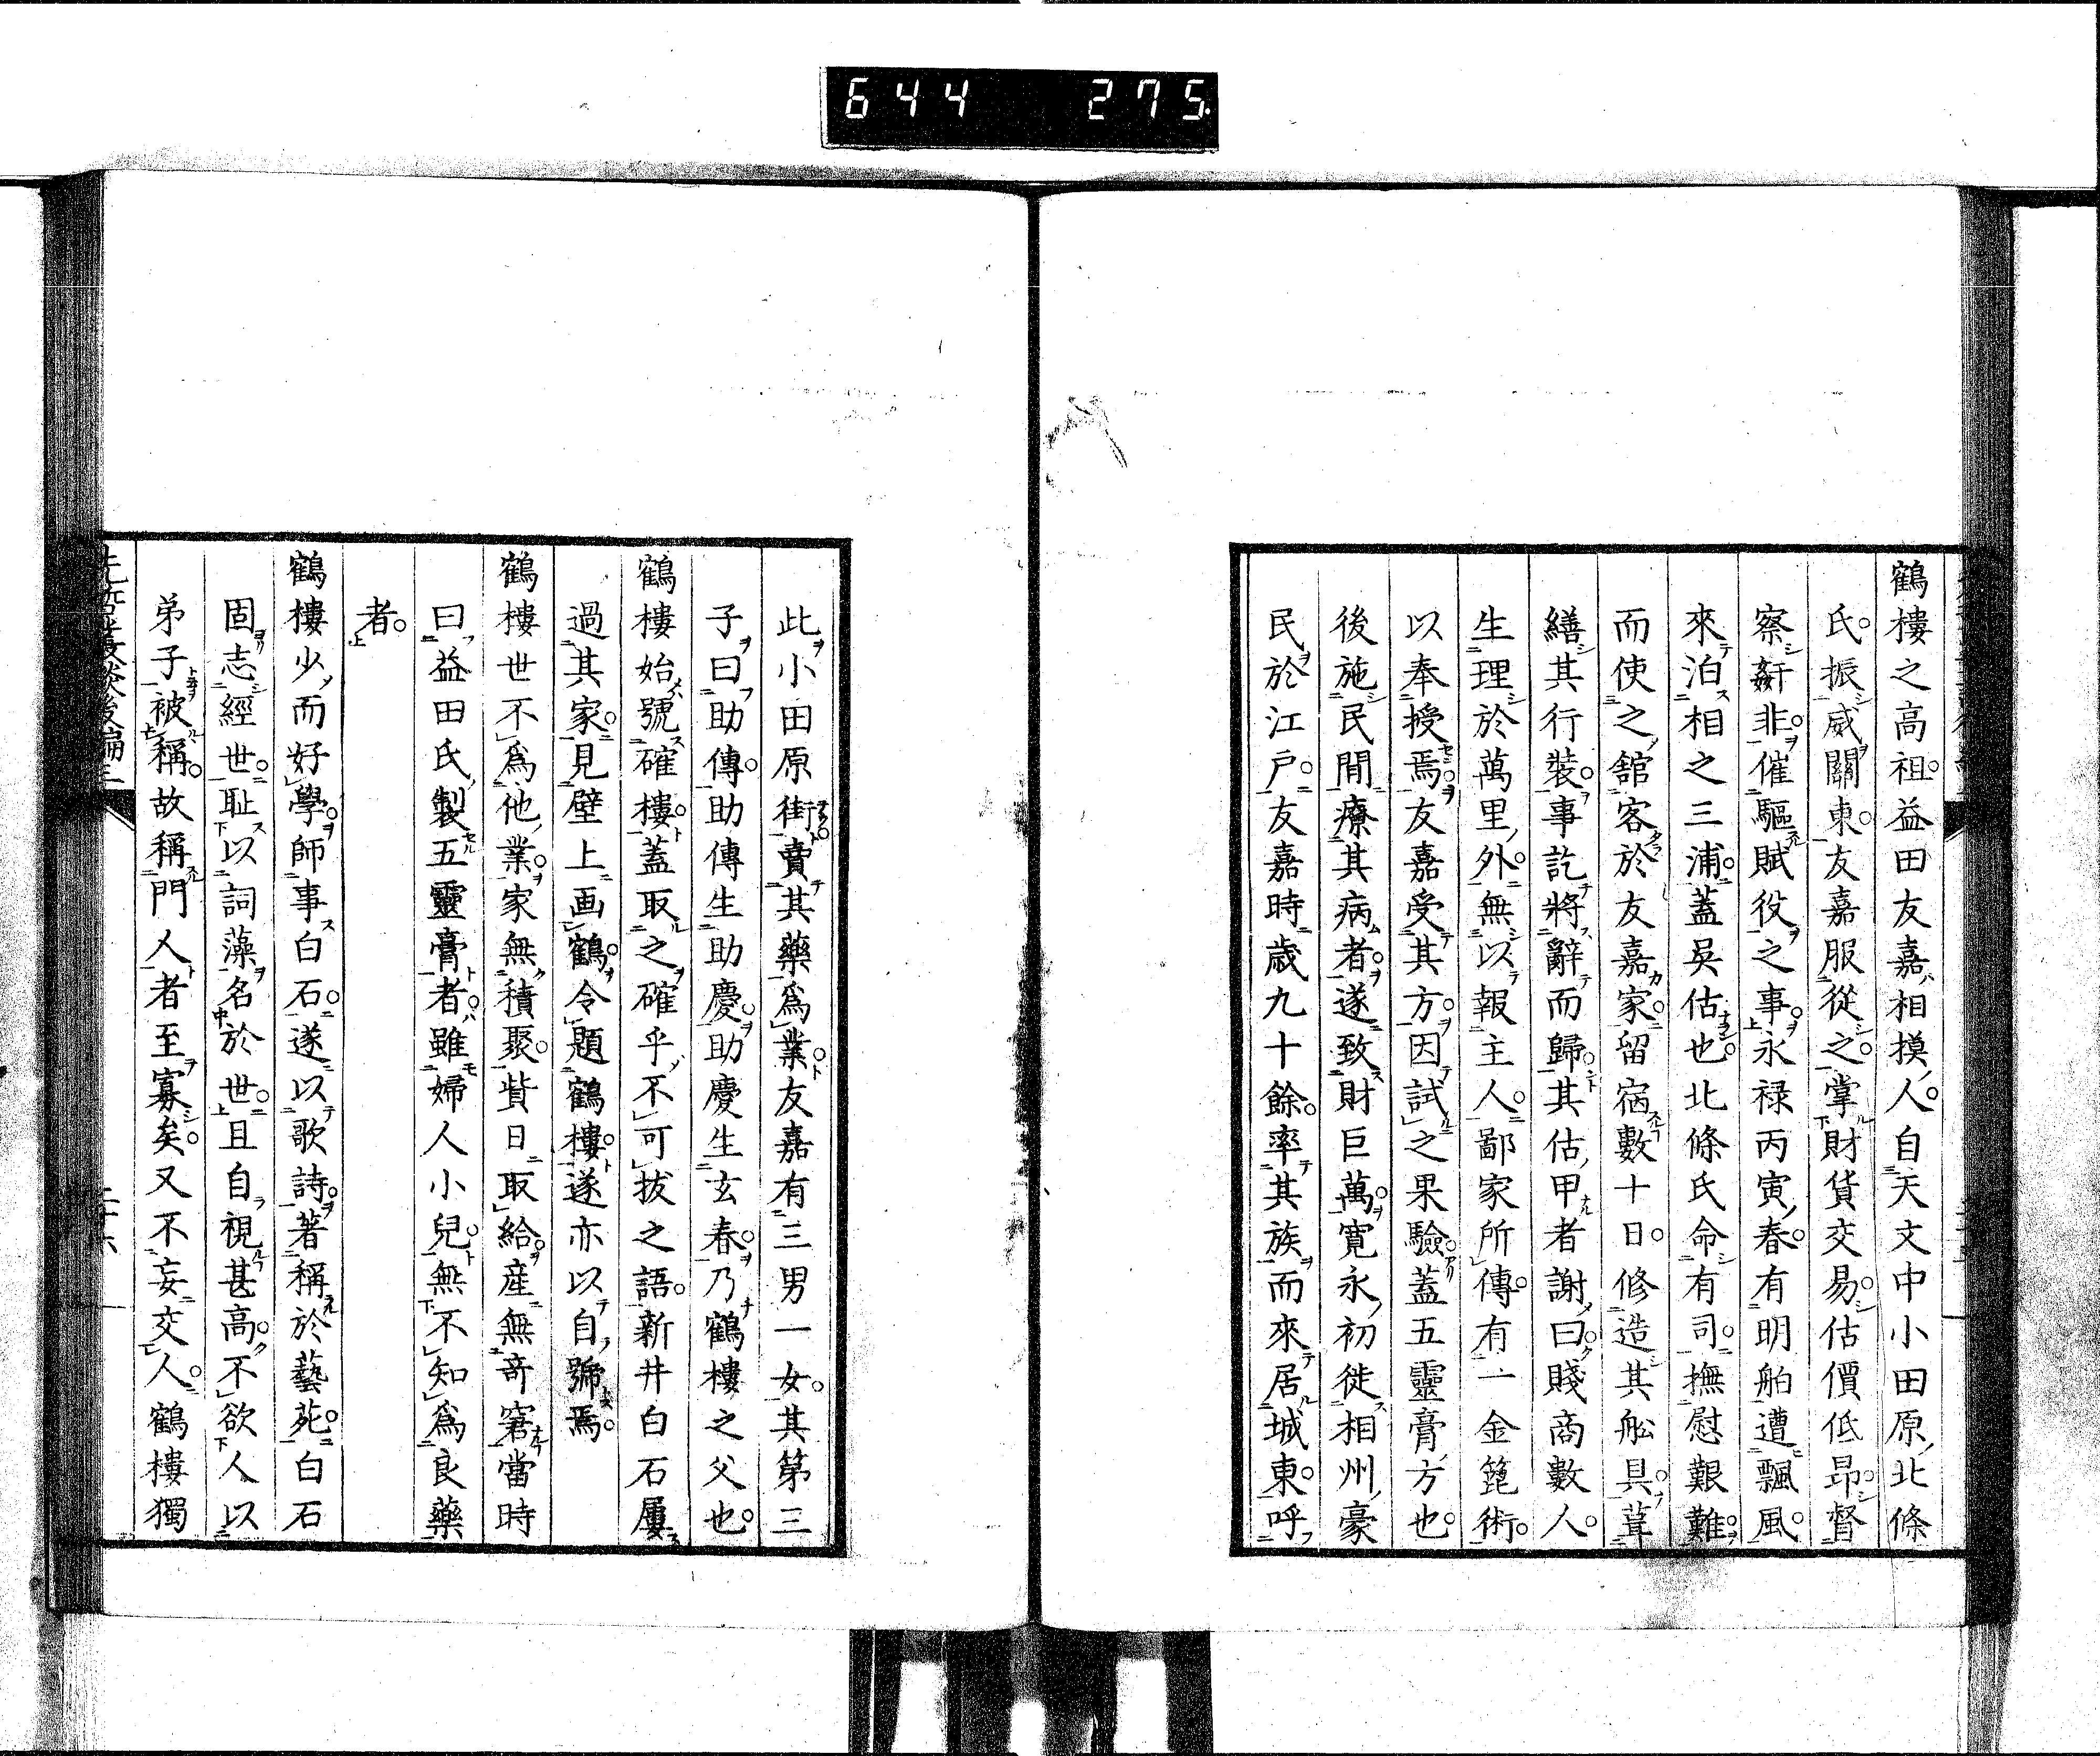 644 275
鶴樓之高祖益田友嘉相摸人自天文中小田原北條
氏振威關東友嘉服從之掌財貨交易估價低昻督
察姧非催驅賦役之事永禄丙寅春有明舶遭飄風
來泊相之三浦蓋吳估也北條氏命有司撫慰艱難
而使之舘客於友嘉家留宿數十日修造其舩具葺
繕其行裝事訖將辭而歸其估甲者謝曰賤商數人
生理於萬里外無以報主人鄙家所傳有一金篦術
以奉授焉友嘉受其方因試之果驗蓋五靈膏方也
後施民間療其病者遂致財巨萬寛永初徙相州豪
民於江戸友嘉時歳九十餘率其族而來居城東呼
此小田原街賣其藥爲業友嘉有三男一女其第三
子曰助傳助傳生助慶助慶生玄春乃鶴樓之父也
鶴樓始號確樓蓋取之確乎不可拔之語新井白石屢
過其家見壁上画鶴令題鶴樓遂亦以自號焉
鶴樓世不爲他業家無積聚貲日取給産無竒窘當時
曰益田氏製五靈膏者雖婦人小兒無不知爲良藥
者
鶴樓少而好學師事白石遂以歌詩著稱於藝苑白石
固志經世耻以詞藻名於世且自視甚高不欲人以
弟子被稱故稱門人者至寡矣又不妄交人鶴樓獨